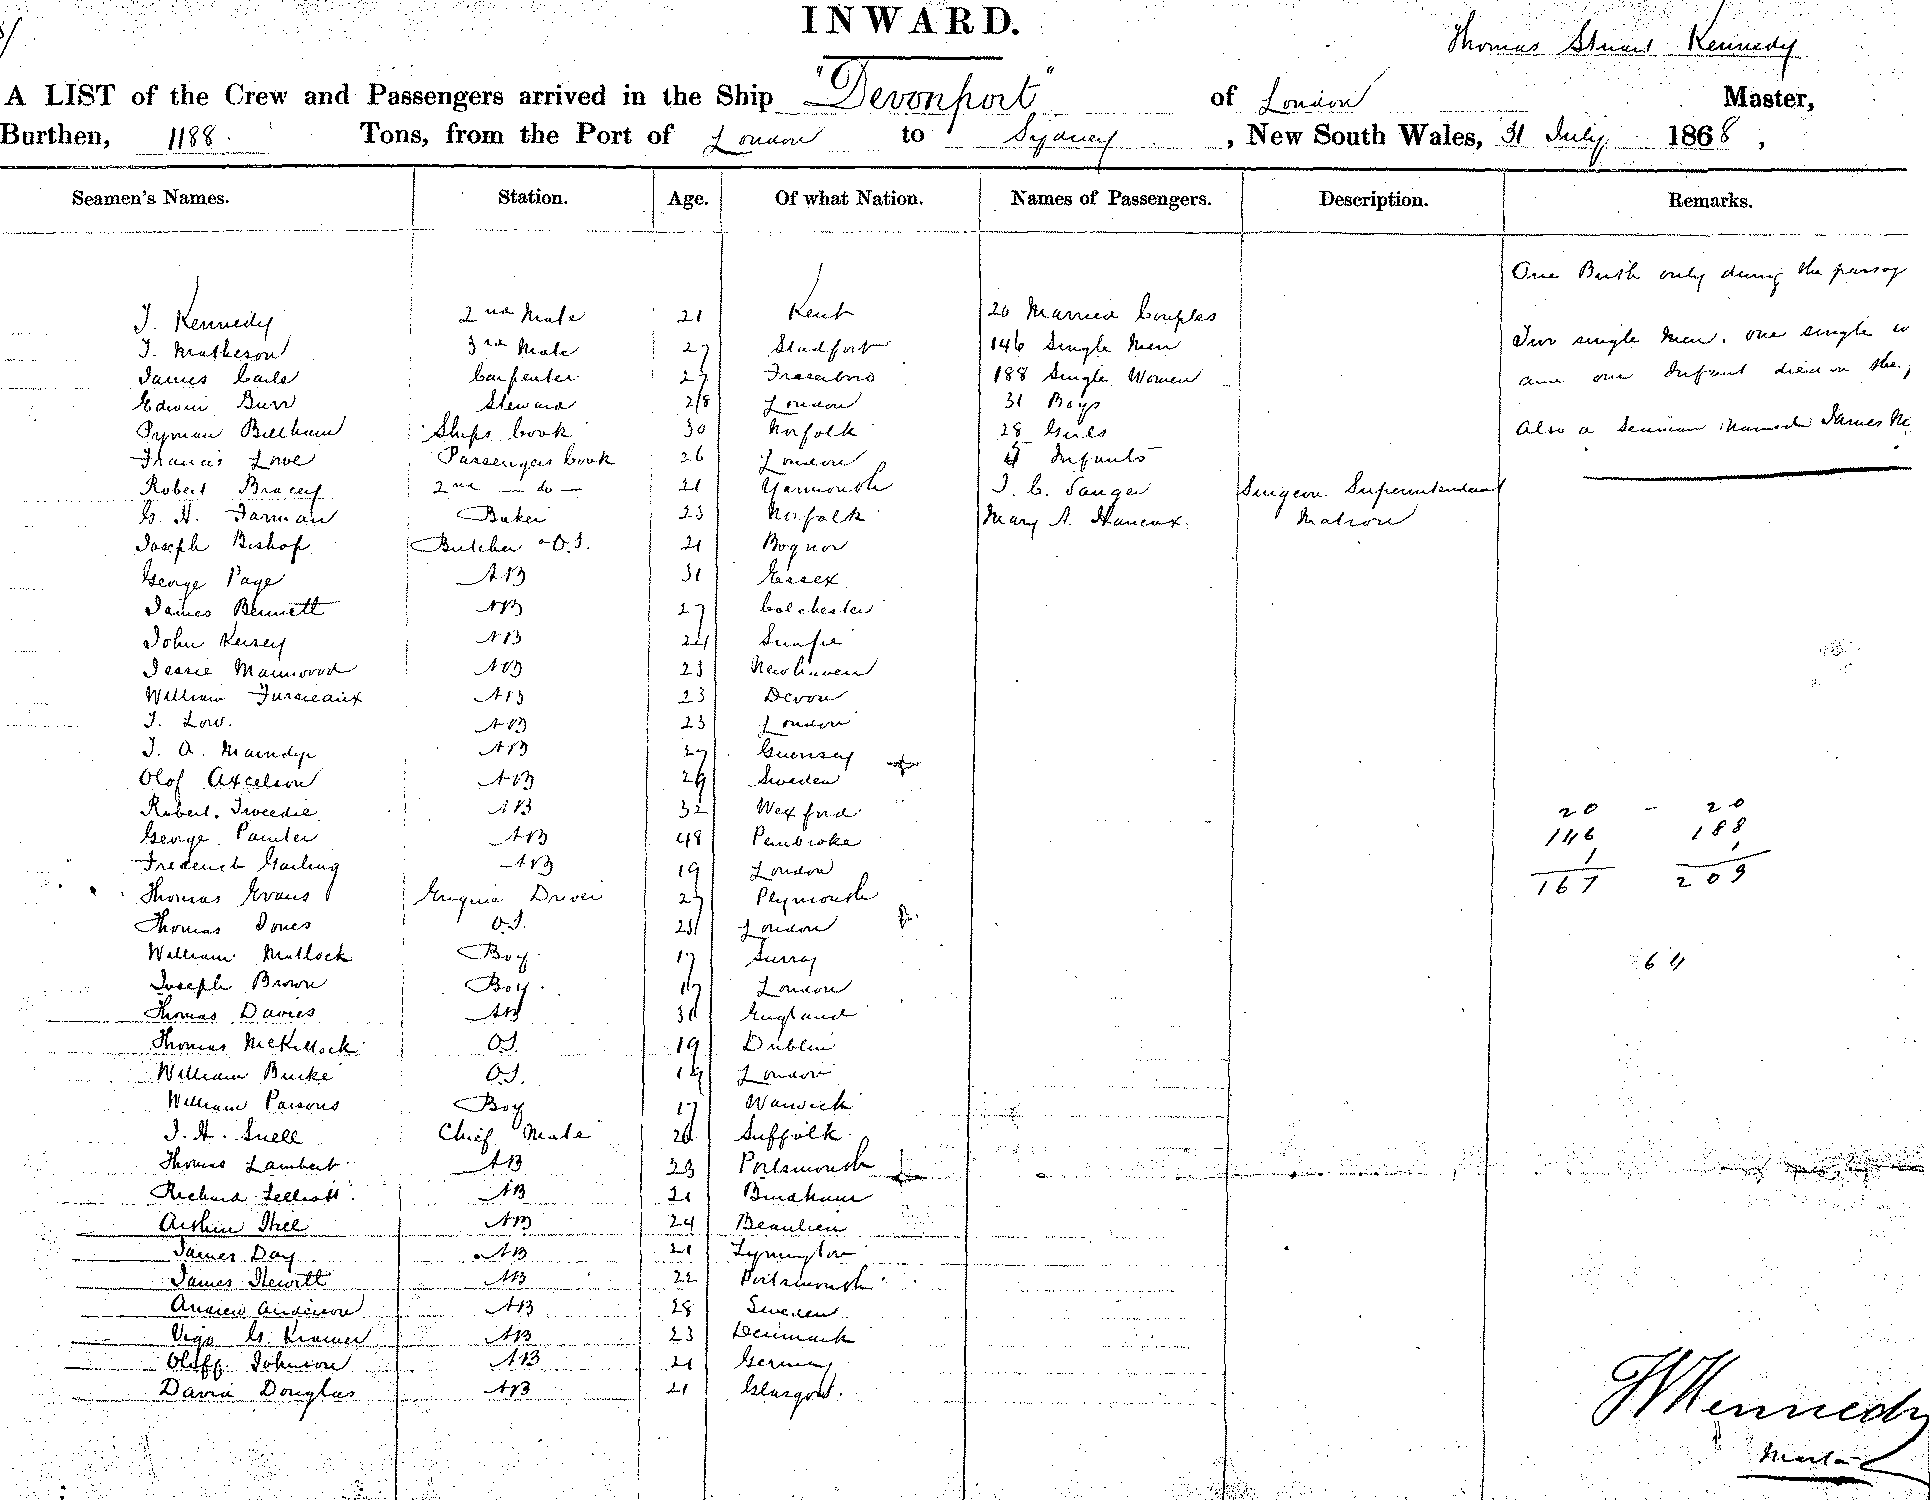 INWARD.
Thomas Stuart Kennedy
A LIST of the Crew and Passengers arrived in the Ship "Devonport" of London Master,
Burthen, 1188 Tons, from the Port of London to Sydney, New South Wales, 31 July 1868,
Seamen's Names. Station. Age. Of what Nation. Names of Passengers. Description. Remarks.
One Birth only during the passag
T. Kennedy 2nd Mate 21 Kent 20 Married Couples
J. Matheson 3rd Mate 27 146 Single Men Two single Men, one single w
James Carle Carpenter 27 188 Single Women and one Infant died on the
Edwin Burr Steward 28 London 31 Boys
Pyman Billham Ships Cook 30 Norfolk 28 Girls Also a Seaman named James Mc
Francis Lowe Passengers Cook 26 London Infants
Robert Bracey 2nd - do - 21 Yarmouth J. C. Sanger Surgeon Superintendant
G. H. Farman Baker 23 Norfolk Mary A. Hancox Matron
Joseph Bishop Butcher & O.S. 21 Bognor
George Page AB 31 Essex
James Bennett AB 27 Colchester
John Kersey AB 24
Jessie Mainwood AB 23 Newhaven
William Furseaux AB 23 Devon
J. Low. AB 23 London
J. A. Maindp AB 27 Guernsey
Olof Axcelson AB 29 Sweden
Robert Tweedie AB 32 Wexford 20 - 20
George Painter AB 48 Pembroke 146 188
Frederick Garling AB 19 London 1 1
Thomas Evans Engine Driver 27 Plymouth 167 209
Thomas Jones O.S. London
William Matlock Boy 17 Surray 64
Joseph Brown Boy 17 London
Thomas Davies AB England
Thomas McKillock OS. 19 Dublin
William Burke O.S. 19 London
William Parsons Boy 17 Warwick
J. H. Snell Chief Mate Suffolk
Thomas Lambert AB 23 Portsmouth
Richard Lelliott AB 21
AB 24 Beaulieu
James Day AB 21 Lymington
James Hewitt AB 22 Portsmouth
Andrew Anderson AB 28 Sweden
Vigo G. Kramer AB 23 Denmark
Oloff Johnson AB 21 Germany
David Douglas AB 21 Glasgow.
Kennedy
Master